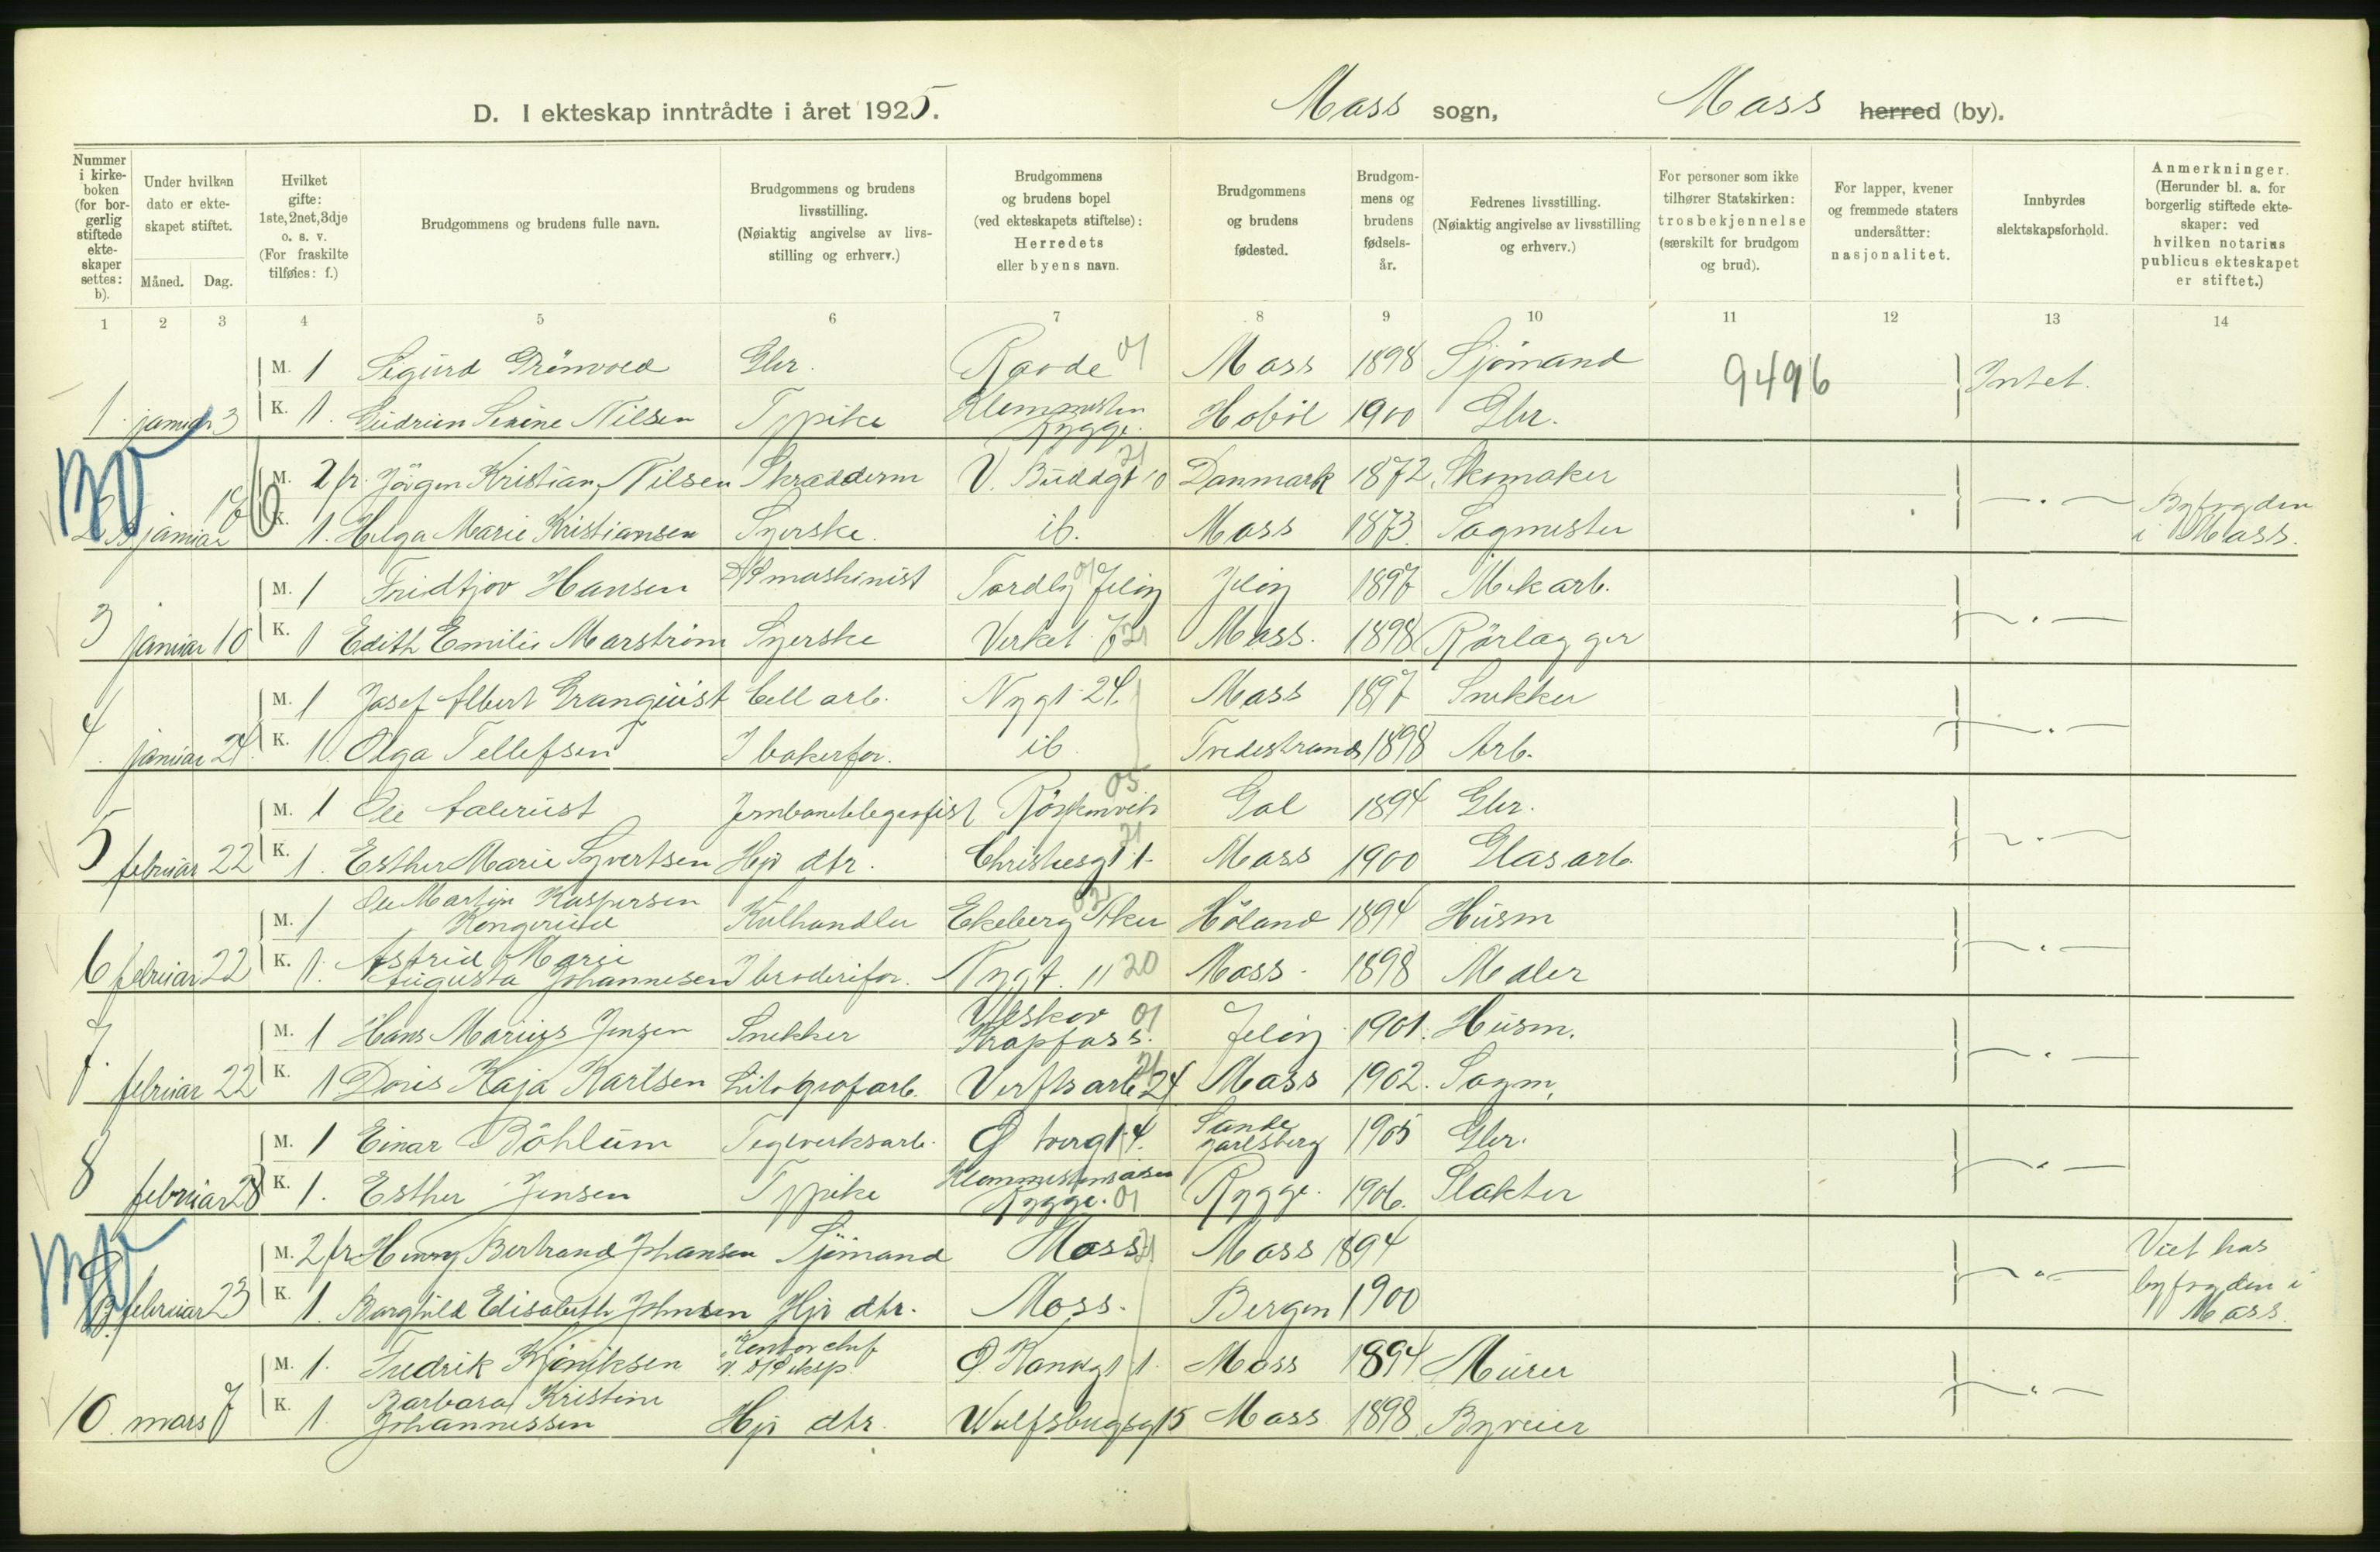 D. I ekteskap inntrådte i året 1925.
Moss sogn, Moss herred (by).
Nummer i kirkeboken (for borgerlig stiftede ekteskaper settes: b).
Under hvilken dato er ekteskapet stiftet.
Måned. Dag.
Hvilket gifte: 1ste, 2net, 3dje o. s. v. (For fraskilte tilføies: f.)
Brudgommens og brudens fulle navn.
Brudgommens og brudens livsstilling. (Nøiaktig angivelse av livsstilling og erhverv.)
Brudgommens og brudens bopel (ved ekteskapets stiftelse): Herredets eller byens navn.
Brudgommens og brudens fødested.
Brudgommens og brudens fødselsår.
Fedrenes livsstilling. (Nøiaktig angivelse av livsstilling og erhverv.)
For personer som ikke tilhører Statskirken: trosbekjennelse (særskilt for brudgom og brud).
For lapper, kvener og fremmede staters undersåtter: nasjonalitet.
Innbyrdes slektskapsforhold.
Anmerkninger. (Herunder bl. a. for borgerlig stiftede ekteskaper: ved hvilken notarius publicus ekteskapet er stiftet.)
1 2 3 4 5 6 7 8 9 10 11 12 13 14
M. 1 Sigurd Grönvold Gbr. Raade 01 Moss 1898 Sjömand 9496 Intet.
1 januar 3 K. 1. Gudrun Serine Nilsen Tppike Rygge. Hobøl 1900 Gbr.
M. 2 fr. Jörgen Kristian Nilsen Skrædderm V. Buddgt 10 Danmark 1872 Skomaker — " —
2 B januar 16 K. 1. Helga Marie Kristiansen Syerske. ib. Moss 1873. Sagmester Byfogden i Moss.
M. 1 Fridtjov Hansen D/S maskinist Jeløy 01 Jeløy 1897 Mek arb. — " —
3 januar 10 K. 1 Edith Emilie Marström Syerske Verket 7 Moss. 1898 Rörlægger
M. 1 Josef Albert Granquist Cell arb. Nygt 24. Moss 1897 Snekker — " —
4. januar 24. K. 1. Olga Tellefsen I bakerfor. ib Tvedestrand 1898 Arb.
M. 1 Ole Jernbanetelegrafist 05 Gol 1894 Gbr. — " —
5 februar 22 K. 1. Esther Marie Syvertsen Hjv dtr. Christiesgt 1. Moss 1900 Glasarb.
M. 1 Ole Martin Kaspersen Kongerud Kulhandler Ekeberg Aker Höland 1894 Husm — " —
6 februar 22 K. 1. Astrid Marie Augusta Johannesen I broderifor. Nygt. 11 20 Moss. 1898 Maler
M. 1 Hans Marius Jensen Snekker Ulskov Krapfoss. 01 Jeløy 1901. Husm. — " —
7. februar 22 K. 1 Doris Kaja Karlsen Litografarb. 24 Moss 1902. Sagm.
M. 1 Einar Böhlum Teglverksarb. Ø torvgt 4. Sande Jarlsberg 1905 Gbr. — " —
8 februar 28 K. 1. Esther Jensen Tppike Rygge. 01 Rygge. 1906. Slakter
M. 2 fr Henry Bertrand Johansen Sjömand Moss Moss 1894 — " —
9 B. februar 23 K. 1. Borghild Elisabeth Johnsen Hjv dtr. Moss. Bergen 1900 Viet hos byfogden i Moss.
M. 1. Fredrik Kjöniksen Kontorchef Ø Kanalgt 1. Moss 1894 Murer — " —
10. mars 7 K. 1. Barbara Kristine Johannessen Hjv dtr. 15 Moss 1898. Byveier